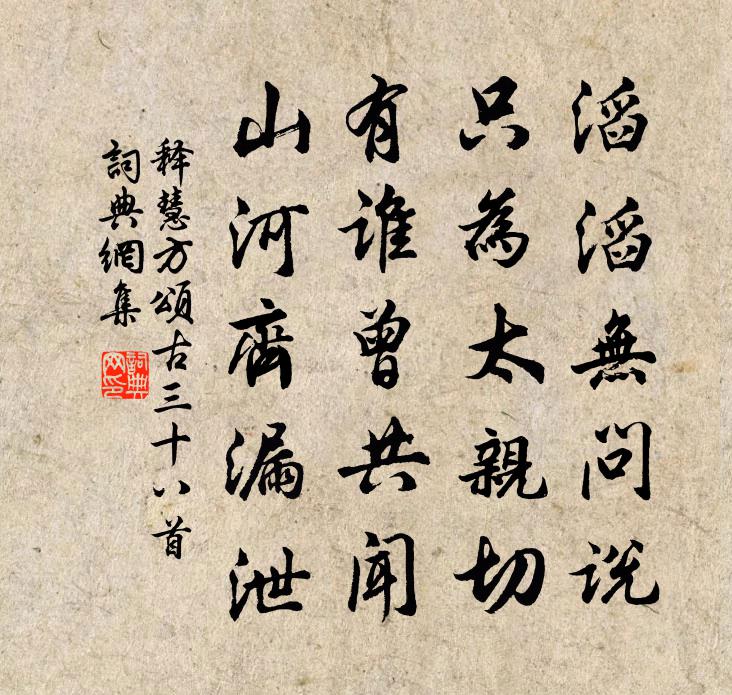 滔滔無問說
只為太親切
有誰曾共聞
山河齊漏泄
释慧方頌古三十八首
詞典網集
詞典网印